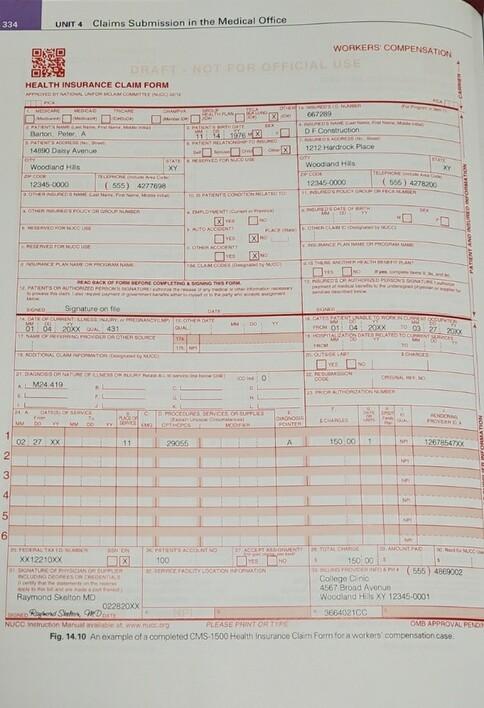 334
UNIT 4 Claims Submission in the Medical Office
WORKERS' COMPENSATION
DRAFT - NOT FOR OFFICIAL USE
HEALTH INSURANCE CLAIM FORM
APPROVED BY NATIONAL UNIFORM CLAIM COMMITTEE (NUCC) 02/12
PICA
PICA
CARRIER
1. MEDICARE MEDICAID TRICARE CHAMPVA GROUP HEALTH PLAN FECA BLK LUNG OTHER
X
1a. INSURED'S I.D. NUMBER
667289
2. PATIENT'S NAME (Last Name, First Name, Middle Initial)
Barton, Peter, A
3. PATIENT'S BIRTH DATE SEX
MM DD YY
11 14 1976 M X F
4. INSURED'S NAME (Last Name, First Name, Middle Initial)
D F Construction
5. PATIENT'S ADDRESS (No., Street)
14890 Daisy Avenue
6. PATIENT RELATIONSHIP TO INSURED
Self Spouse Child Other X
7. INSURED'S ADDRESS (No., Street)
1212 Hardrock Place
CITY
Woodland Hills
STATE
XY
8. RESERVED FOR NUCC USE
CITY
Woodland Hills
STATE
XY
ZIP CODE
12345-0000
TELEPHONE (Include Area Code)
( 555 ) 4277698
ZIP CODE
12345-0000
TELEPHONE (Include Area Code)
( 555 ) 4278200
9. OTHER INSURED'S NAME (Last Name, First Name, Middle Initial)
10. IS PATIENT'S CONDITION RELATED TO:
11. INSURED'S POLICY GROUP OR FECA NUMBER
a. OTHER INSURED'S POLICY OR GROUP NUMBER
a. EMPLOYMENT? (Current or Previous)
X YES NO
a. INSURED'S DATE OF BIRTH SEX
MM DD YY
M F
b. RESERVED FOR NUCC USE
b. AUTO ACCIDENT? PLACE (State)
YES X NO
b. OTHER CLAIM ID (Designated by NUCC)
c. RESERVED FOR NUCC USE
c. OTHER ACCIDENT?
YES X NO
c. INSURANCE PLAN NAME OR PROGRAM NAME
d. INSURANCE PLAN NAME OR PROGRAM NAME
10d. CLAIM CODES (Designated by NUCC)
d. IS THERE ANOTHER HEALTH BENEFIT PLAN?
YES NO If yes, complete items 9, 9a, and 9d.
PATIENT AND INSURED INFORMATION
READ BACK OF FORM BEFORE COMPLETING & SIGNING THIS FORM.
12. PATIENT'S OR AUTHORIZED PERSON'S SIGNATURE I authorize the release of any medical or other information necessary
to process this claim. I also request payment of government benefits either to myself or to the party who accepts assignment
below.
13. INSURED'S OR AUTHORIZED PERSON'S SIGNATURE I authorize
payment of medical benefits to the undersigned physician or supplier for
services described below.
SIGNED Signature on file DATE
SIGNED
14. DATE OF CURRENT ILLNESS, INJURY, or PREGNANCY (LMP)
MM DD YY
01 04 20XX QUAL. 431
15. OTHER DATE
QUAL. MM DD YY
16. DATES PATIENT UNABLE TO WORK IN CURRENT OCCUPATION
MM DD YY MM DD YY
FROM 01 04 20XX TO 03 27 20XX
17. NAME OF REFERRING PROVIDER OR OTHER SOURCE
17a.
17b. NPI
18. HOSPITALIZATION DATES RELATED TO CURRENT SERVICES
MM DD YY MM DD YY
FROM TO
19. ADDITIONAL CLAIM INFORMATION (Designated by NUCC)
20. OUTSIDE LAB? $ CHARGES
YES NO
21. DIAGNOSIS OR NATURE OF ILLNESS OR INJURY Relate A-L to service line below (24E) ICD Ind. 0
A. M24.419 B. C. D.
22. RESUBMISSION CODE ORIGINAL REF. NO.
23. PRIOR AUTHORIZATION NUMBER
24. A. DATE(S) OF SERVICE
From To
MM DD YY MM DD YY
B. PLACE OF SERVICE
C. EMG
D. PROCEDURES, SERVICES, OR SUPPLIES
(Explain Unusual Circumstances)
CPT/HCPCS MODIFIER
E. DIAGNOSIS POINTER
F. $ CHARGES
RENDERING PROVIDER ID. #
1 02 27 XX 11 29055 A 150 00 1 NPI 12678547XX
2 NPI
3 NPI
4 NPI
5 NPI
6 NPI
25. FEDERAL TAX I.D. NUMBER SSN EIN
XX12210XX X
26. PATIENT'S ACCOUNT NO.
100
27. ACCEPT ASSIGNMENT?
YES NO
28. TOTAL CHARGE
$ 150 00
29. AMOUNT PAID
$
30. Rsvd for NUCC Use
31. SIGNATURE OF PHYSICIAN OR SUPPLIER
INCLUDING DEGREES OR CREDENTIALS
(I certify that the statements on the reverse
apply to this bill and are made a part thereof.)
Raymond Skelton MD
022820XX
SIGNED Raymond Skelton MD DATE
32. SERVICE FACILITY LOCATION INFORMATION
a. NPI b.
33. BILLING PROVIDER INFO & PH # ( 555 ) 4869002
College Clinic
4567 Broad Avenue
Woodland Hills XY 12345-0001
a. 3664021CC b.
NUCC Instruction Manual available at: www.nucc.org
PLEASE PRINT OR TYPE
OMB APPROVAL PENDI
Fig. 14.10 An example of a completed CMS-1500 Health Insurance Claim Form for a workers' compensation case.